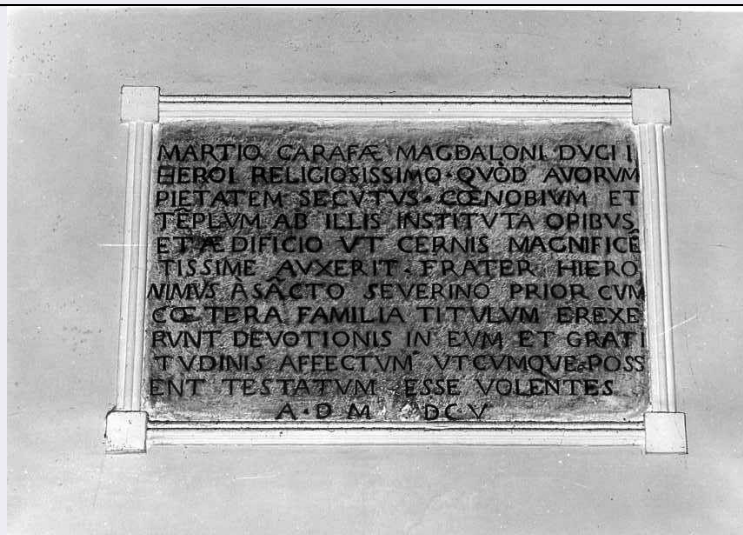 MARTIO CARAFÆ MAGDALONI DVCI I
HEROI RELIGIOSISSIMO · QVÒD AVORVM
PIETATEM SECVTVS · CŒNOBIVM ET
TĒPLVM AB ILLIS INSTITVTA OPIBVS
ET ÆDIFICIO VT CERNIS MAGNIFICĒ
TISSIME AVXERIT · FRATER HIERO
NIMVS A SĀCTO SEVERINO PRIOR CVM
CŒTERA FAMILIA TITVLVM EREXE
RVNT DEVOTIONIS IN EVM ET GRATI
TVDINIS AFFECTVM VTCVMQVE POSS
ENT TESTATVM ESSE VOLENTES
A · D M DCV